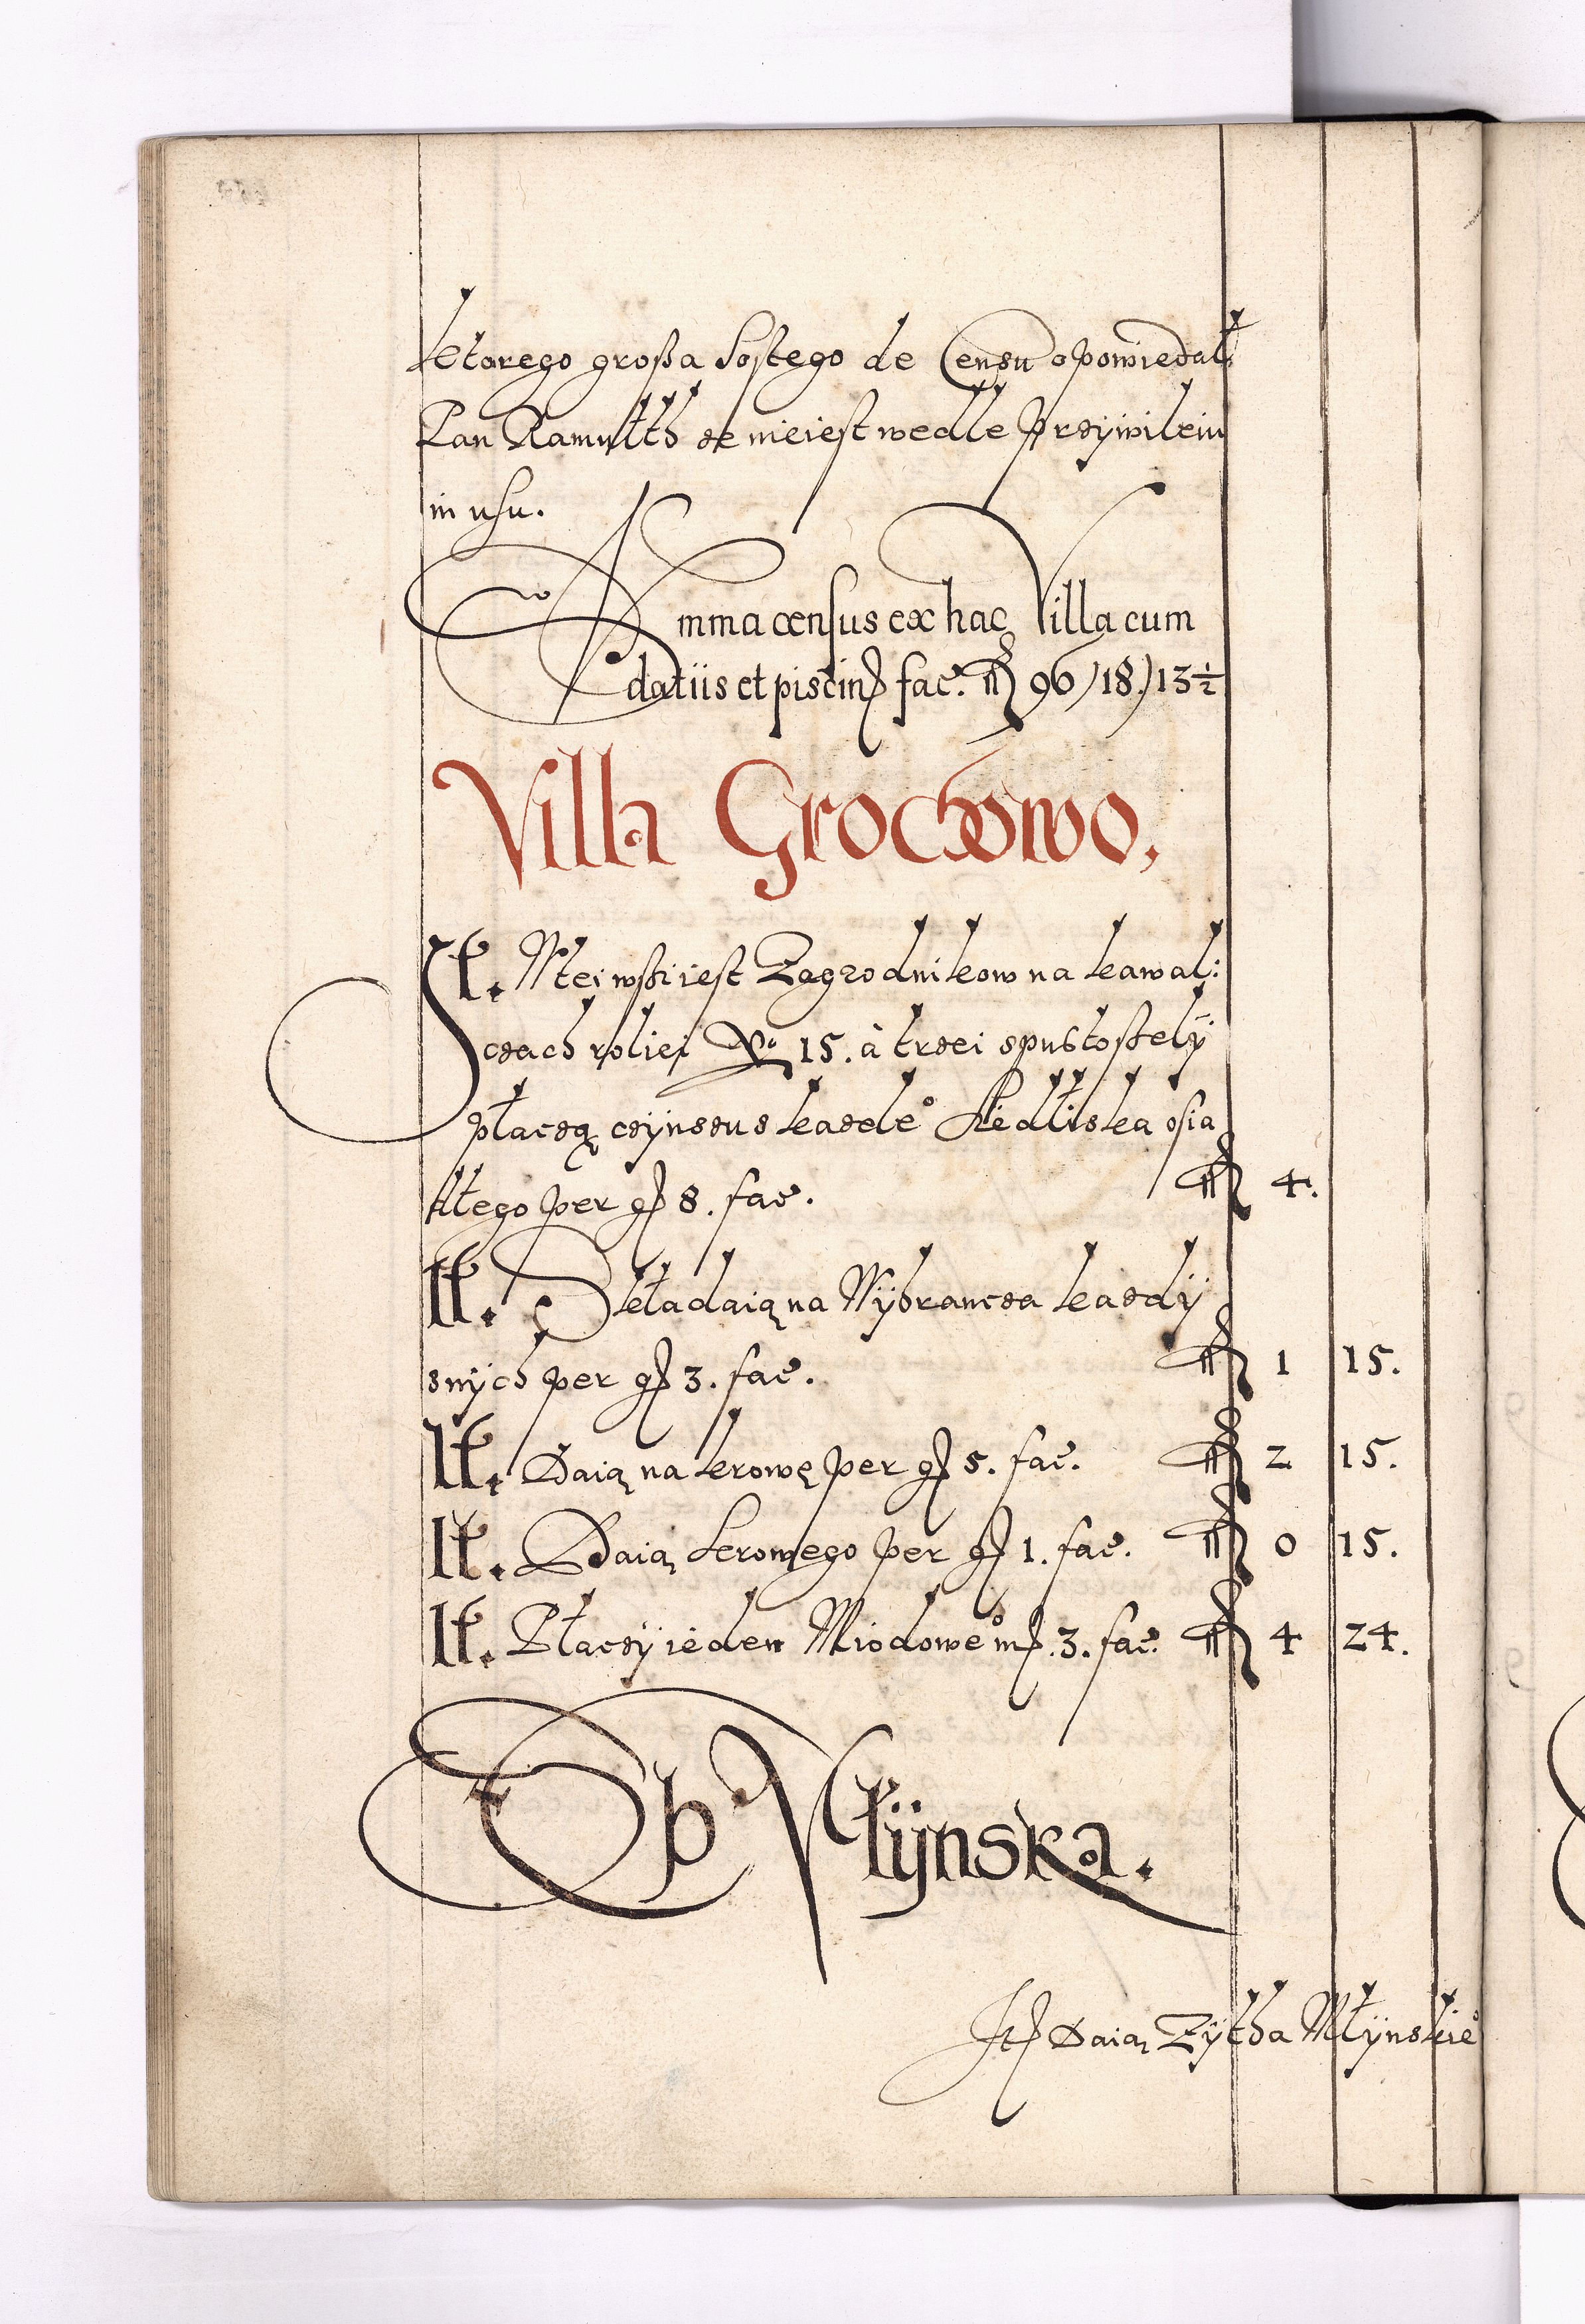 ktorego großa szostego de Censu opowiedał
Pan Ramułth ze nieiest wedle Przÿwileiu
in usu.
Summa census ex hac Villa cum
datiis et piscin fac. fl 96/18/13½
Villa Grochowo,
It. Wtei wśi iest Zagrodnikow na kawal:
czach roliei No 15. à trzei spustoszelÿ
płaczą czÿnszus kazde° Siedliska osia
dłego per gr 8. fac. fl 4.
It. Składaią na Wÿbrancza kazdÿ
znÿch per gr 3. fac. fl 1 15.
It. Daią na krowę per gr 5. fac. fl 2 15.
It. Daią krowego per gr 1. fac. fl 0 15.
It. Płaczÿ ieden Miodowe° m. 3. fac. fl 4 24.
Ob Młÿnska.
It Daią Zÿtha Młÿnskie°